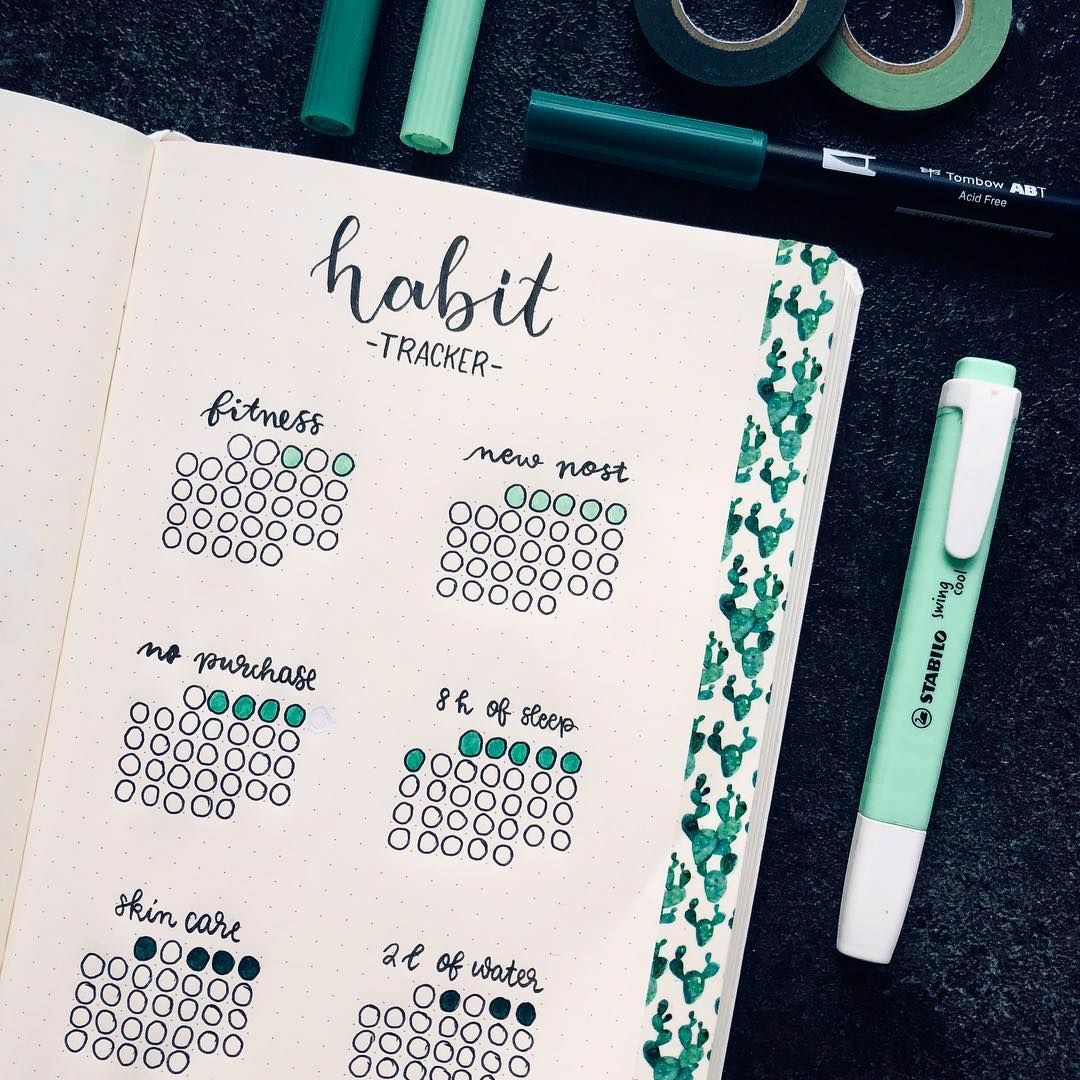 habit
-TRACKER-
fitness
new post
no purchase
8 h of sleep
skin care
2 l of water
Tombow ABT
Acid Free
STABILO swing cool